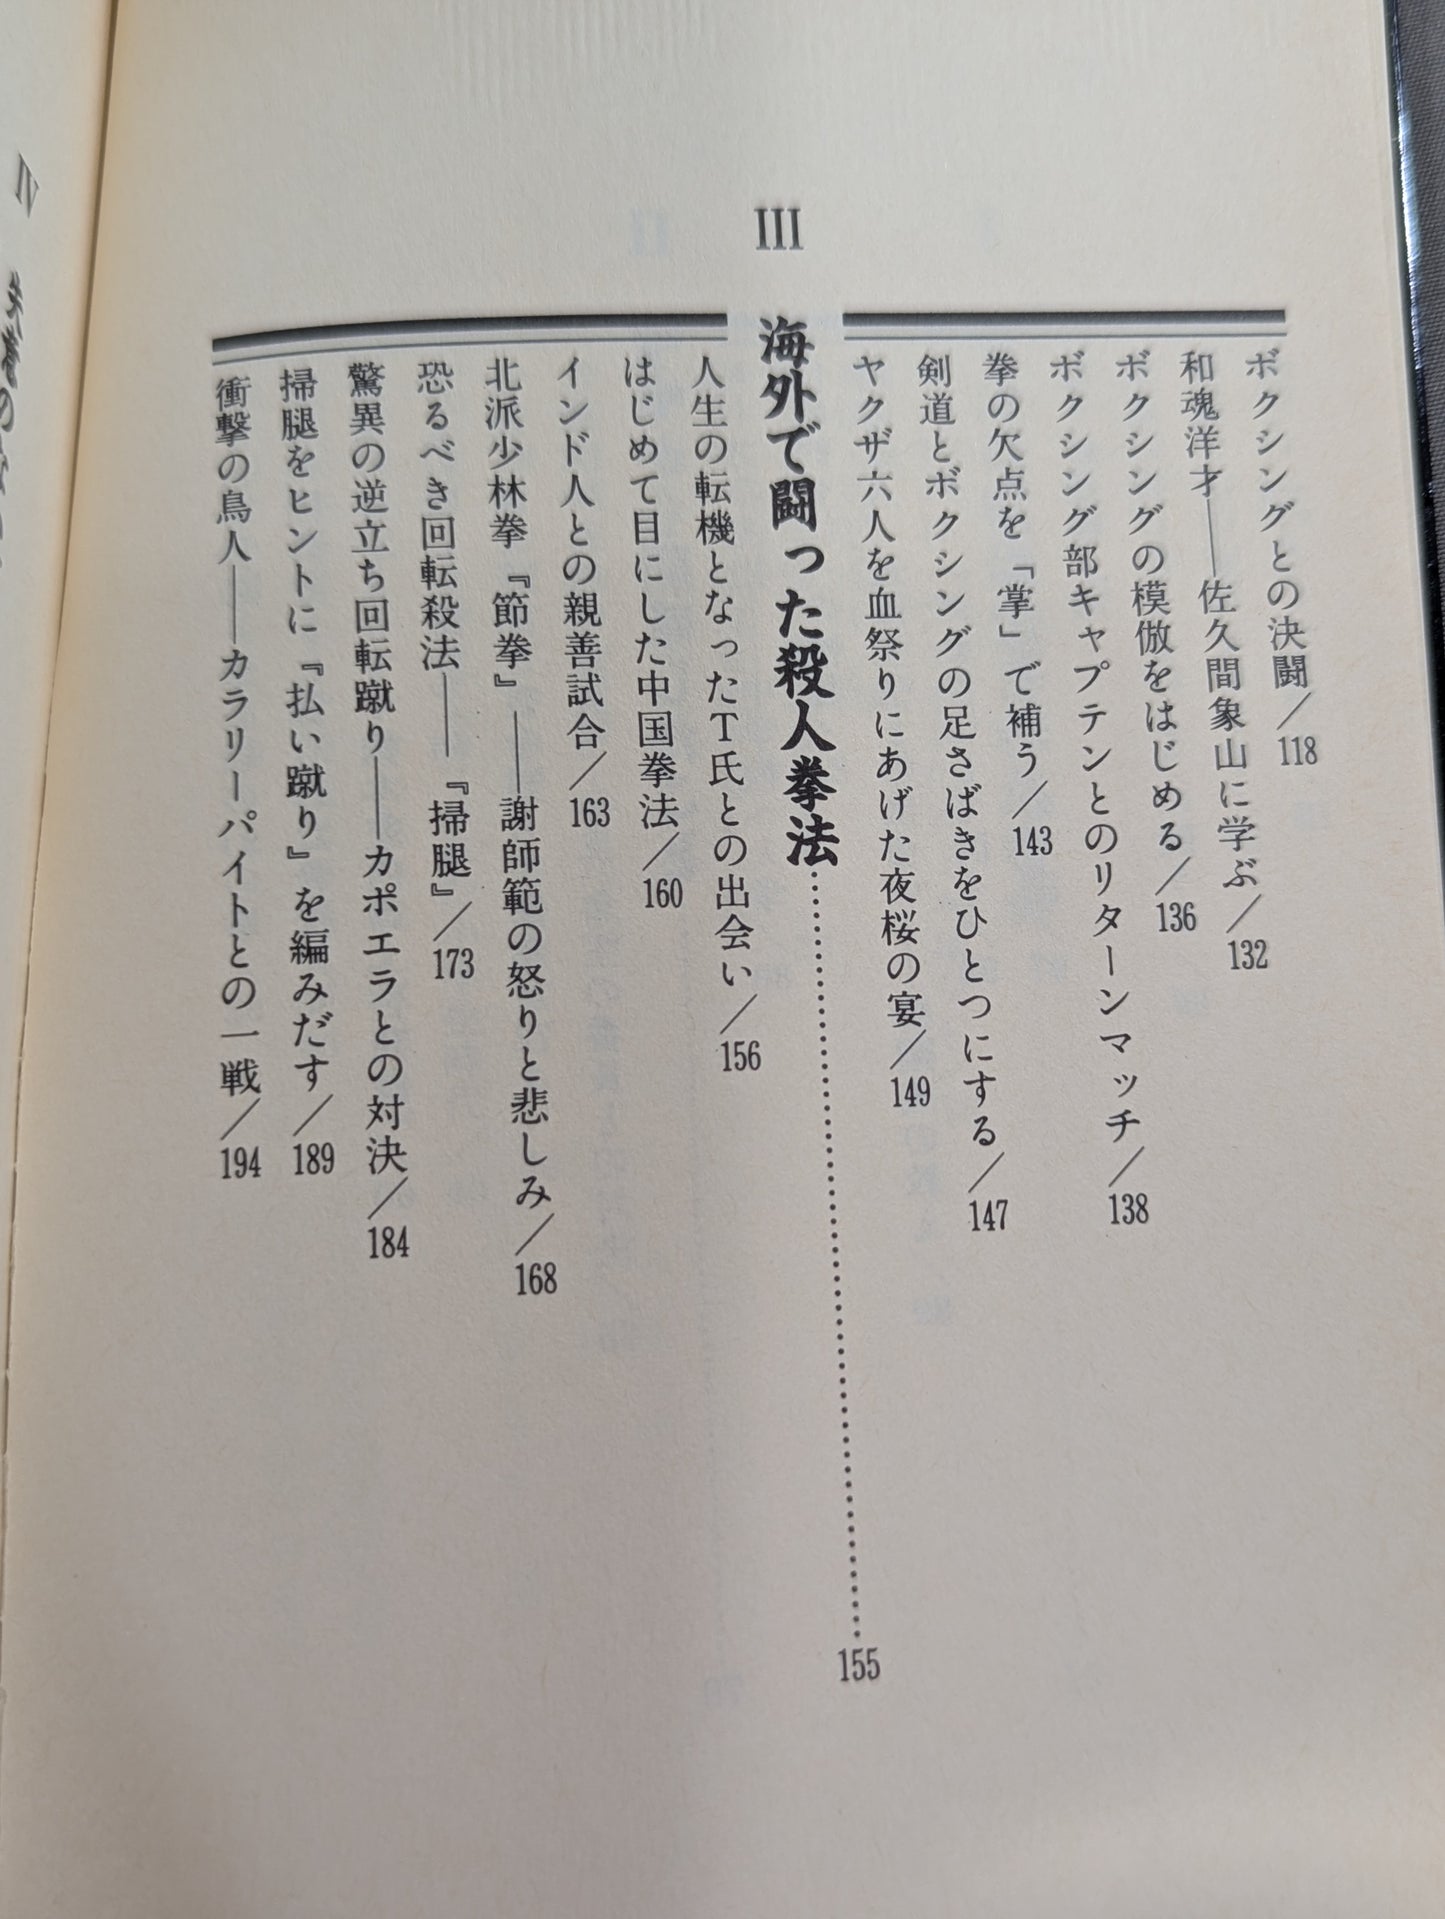 ボクシングとの決闘／118
和魂洋才――佐久間象山に学ぶ／132
ボクシングの模倣をはじめる／136
ボクシング部キャプテンとのリターンマッチ／138
拳の欠点を「掌」で補う／143
剣道とボクシングの足さばきをひとつにする／147
ヤクザ六人を血祭りにあげた夜桜の宴／149
III 海外で闘った殺人拳法……………155
人生の転機となったT氏との出会い／156
はじめて目にした中国拳法／160
インド人との親善試合／163
北派少林拳『節拳』――謝師範の怒りと悲しみ／168
恐るべき回転殺法――『掃腿』／173
驚異の逆立ち回転蹴り――カポエラとの対決／184
掃腿をヒントに『払い蹴り』を編みだす／189
衝撃の鳥人――カラリーパイトとの一戦／194
IV